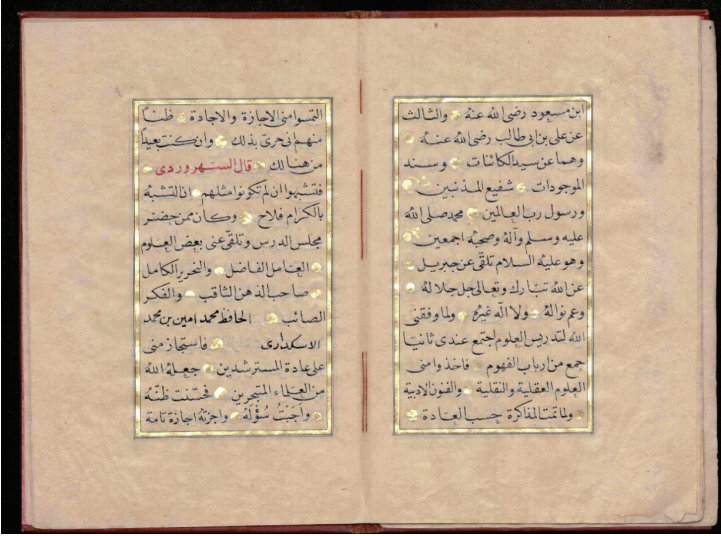 ابن مسعود رضى الله عنه والثالث
عن على بن ابى طالب رضى الله عنه
وهما عن سيد الكائنات وسند
الموجودات شفيع المذنبين
ورسول رب العالمين محمد صلى الله
عليه وسلم وآله وصحبه اجمعين
وهو عليه السلام تلقى عن جبريل
عن الله تبارك وتعالى جل جلاله
وعم نواله ولا اله غيره ولما وفقنى
الله لتدريس العلوم اجتمع عندى ثانيا
جمع من ارباب الفهوم فاخذوا منى
العلوم العقلية والنقلية والفنون الادبية
ولما تمت المذاكرة حسب العادة
التمسوا منى الاجازة والاجادة ظنا
منهم انى حرى بذلك وان كنت بعيدا
من هنالك قال السهروردى
فتشبهوا ان لم تكونوا مثلهم ان التشبه
بالكرام فلاح وكان ممن حضر
مجلس الدرس وتلقى عنى بعض العلوم
العامل الفاضل والنحرير الكامل
صاحب الذهن الثاقب والفكر
الصائب الحافظ محمد امين بن محمد
الاسكدارى فاستجاز منى
على عادة المسترشدين جعله الله
من العلماء المتبحرين فحسنت ظنه
واجبت سؤله واجزته اجازة تامة